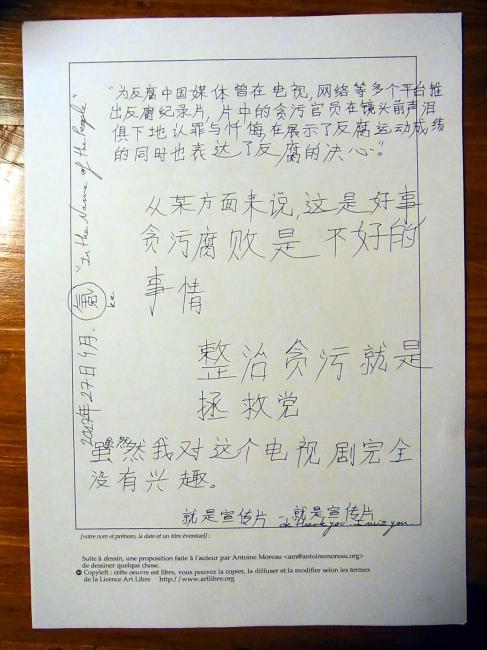 "为反腐中国媒体曾在电视,网络等多个平台推
出反腐纪录片,片中的贪污官员在镜头前声泪
俱下地认罪与忏悔在展示了反腐运动成绩
的同时也表达了反腐的决心"。
从某方面来说,这是好事
贪污腐败是不好的
事情
整治贪污就是
拯救党
虽然我对这个电视剧完全
没有兴趣。
就是宣传片 就是宣传片
thank you. I miss you.
2017年27日4月. 氪 "In the Name of the People"
ke
[votre nom et prénom, la date et un titre éventuel] :
Suite à dessin, une proposition faite à l'auteur par Antoine Moreau <am@antoinemoreau.org>
de dessiner quelque chose.
Copyleft : cette oeuvre est libre, vous pouvez la copier, la diffuser et la modifier selon les termes
de la Licence Art Libre http://www.artlibre.org